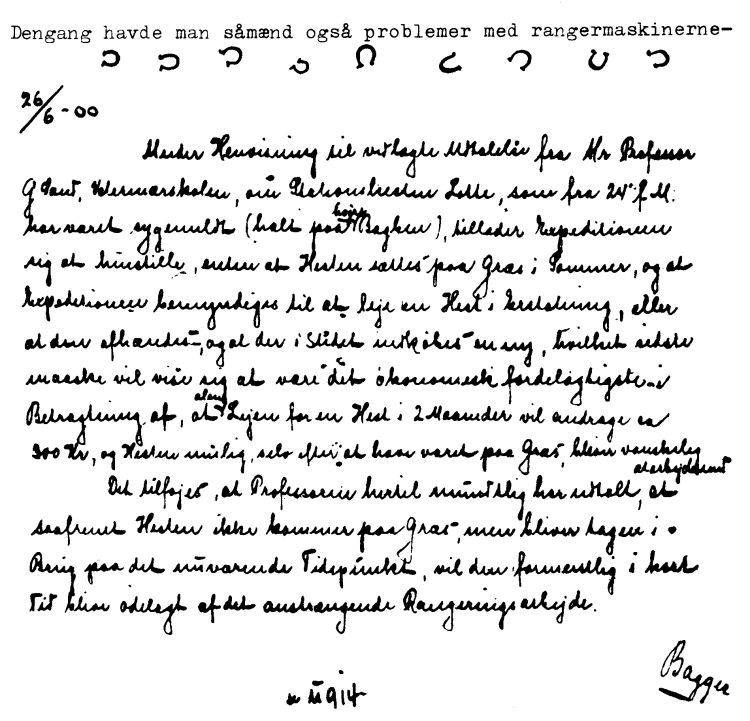 Dengang havde man såmænd også problemer med rangermaskinerne-
26/6-00
Under Henvisning til vedlagte Udtalelse fra Hr Professor
G Sand, Veterinærskolen, om Stationshesten Lotte, som fra 24' f. M.
har været sygemeldt (halt paa højre Bagben), tillader Expeditionen
sig at henstille, enten at Hesten sættes paa Græs i Sommer, og at
Expeditionen bemyndiges til at leje en Hest i Erstatning, eller
at den afhændes, og at der i Stedet indkøbes en ny, hvilket sidste
maaske vil vise sig at være det økonomisk fordelagtigste i
Betragtning af, at alene Lejen for en Hest i 2 Maaneder vil andrage ca
300 Kr, og Hesten mulig, selv efter at have været paa Græs, bliver vanskelig
at arbejde med
Det tilføjes, at Professoren hertil mundtlig har udtalt, at
saafremt Hesten ikke kommer paa Græs, men bliver tagen i
Brug paa det nuværende Tidspunkt, vil den formentlig i kort
Tid blive ødelagt af det anstrængende Rangeringsarbejde.
Bagger
914